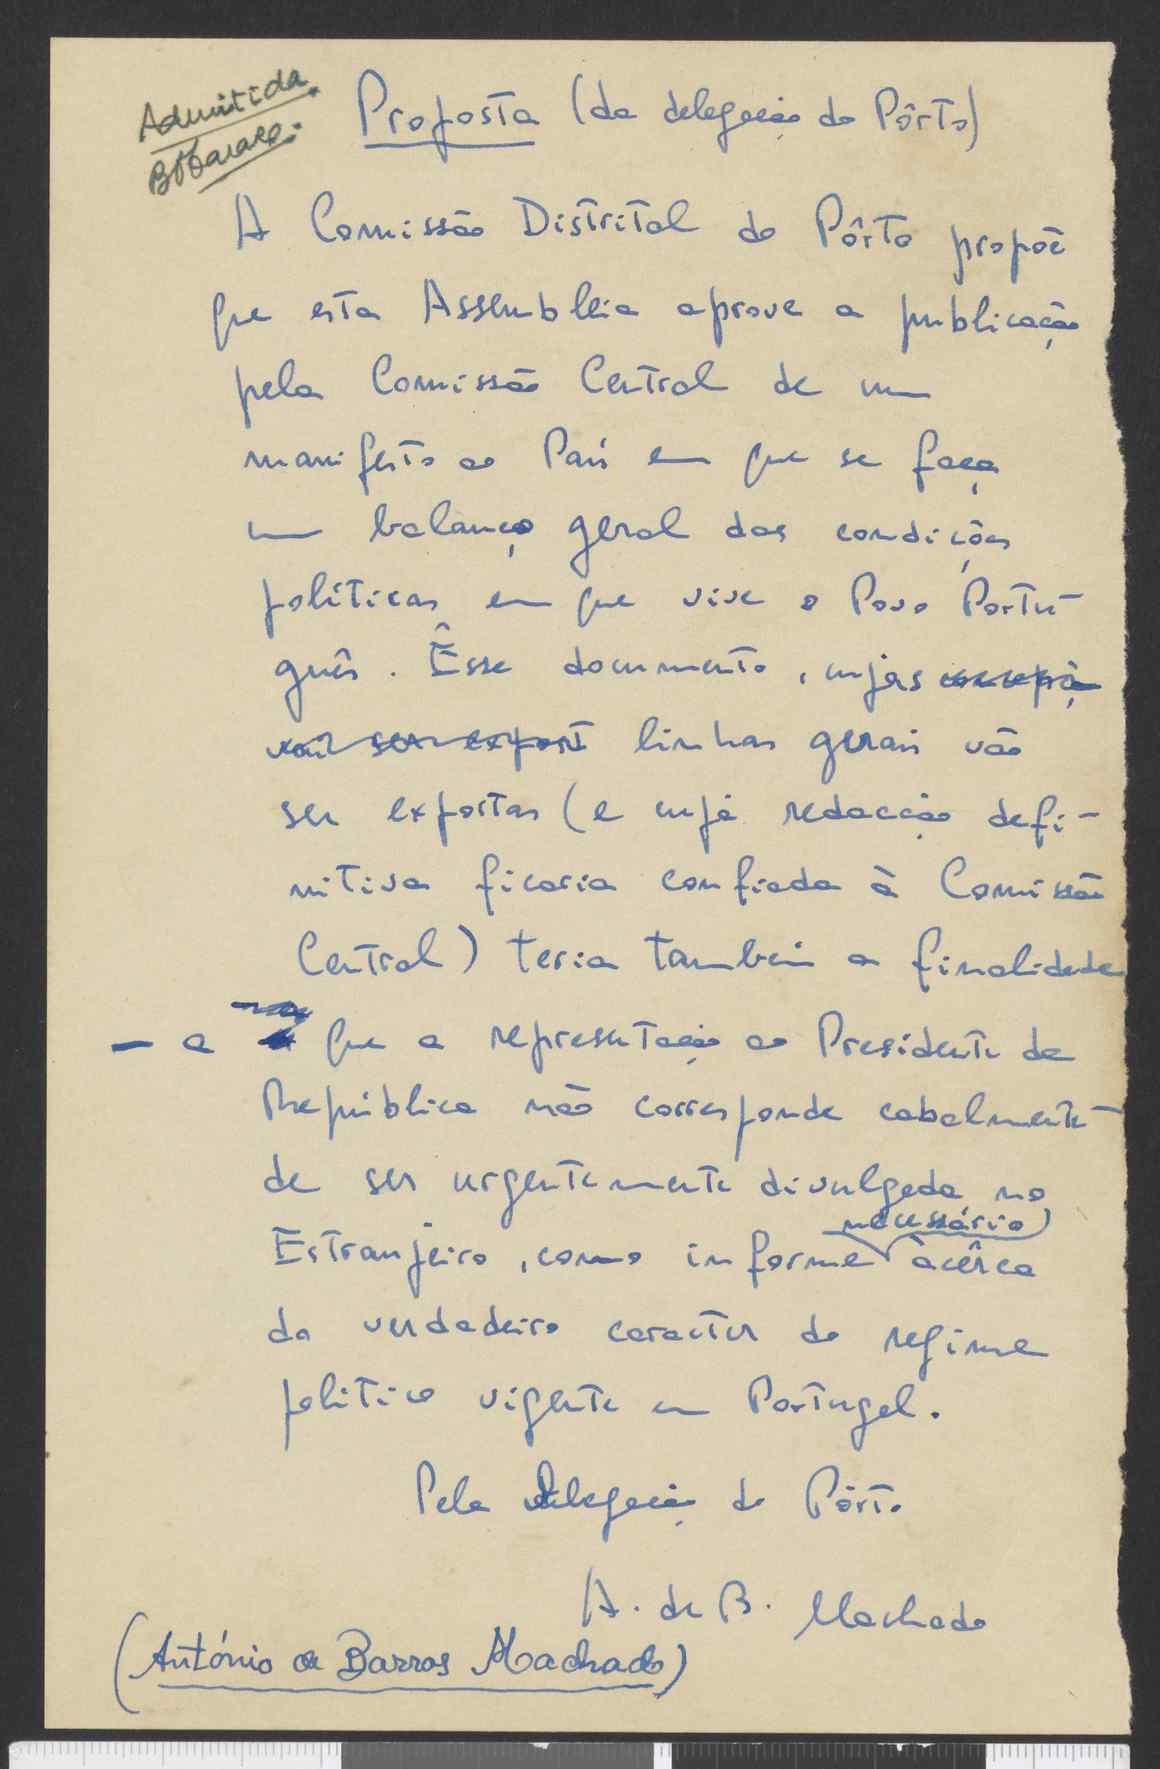 Admitida
Proposta (da delegação do Pôrto)
A Comissão Distrital do Pôrto propõe
que esta Assembleia aprove a publicação
pela Comissão Central de um
manifesto ao País em que se faça
um balanço geral das condições
políticas em que vive o Povo Portu-
guês. Êsse documento, cujas
vai ser expost linhas gerais vão
ser expostas (e cuja redacção defi-
nitiva ficaria confiada à Comissão
Central) teria também a finalidade
- a que a representação ao Presidente da
República não corresponde cabalmente -
de ser urgentemente divulgada no
Estranjeiro, como informe necessário àcêrca
do verdadeiro caracter do regime
politico vigente em Portugal.
Pela Delegação do Pôrto
A. de B. Machado
(António de Barros Machado)